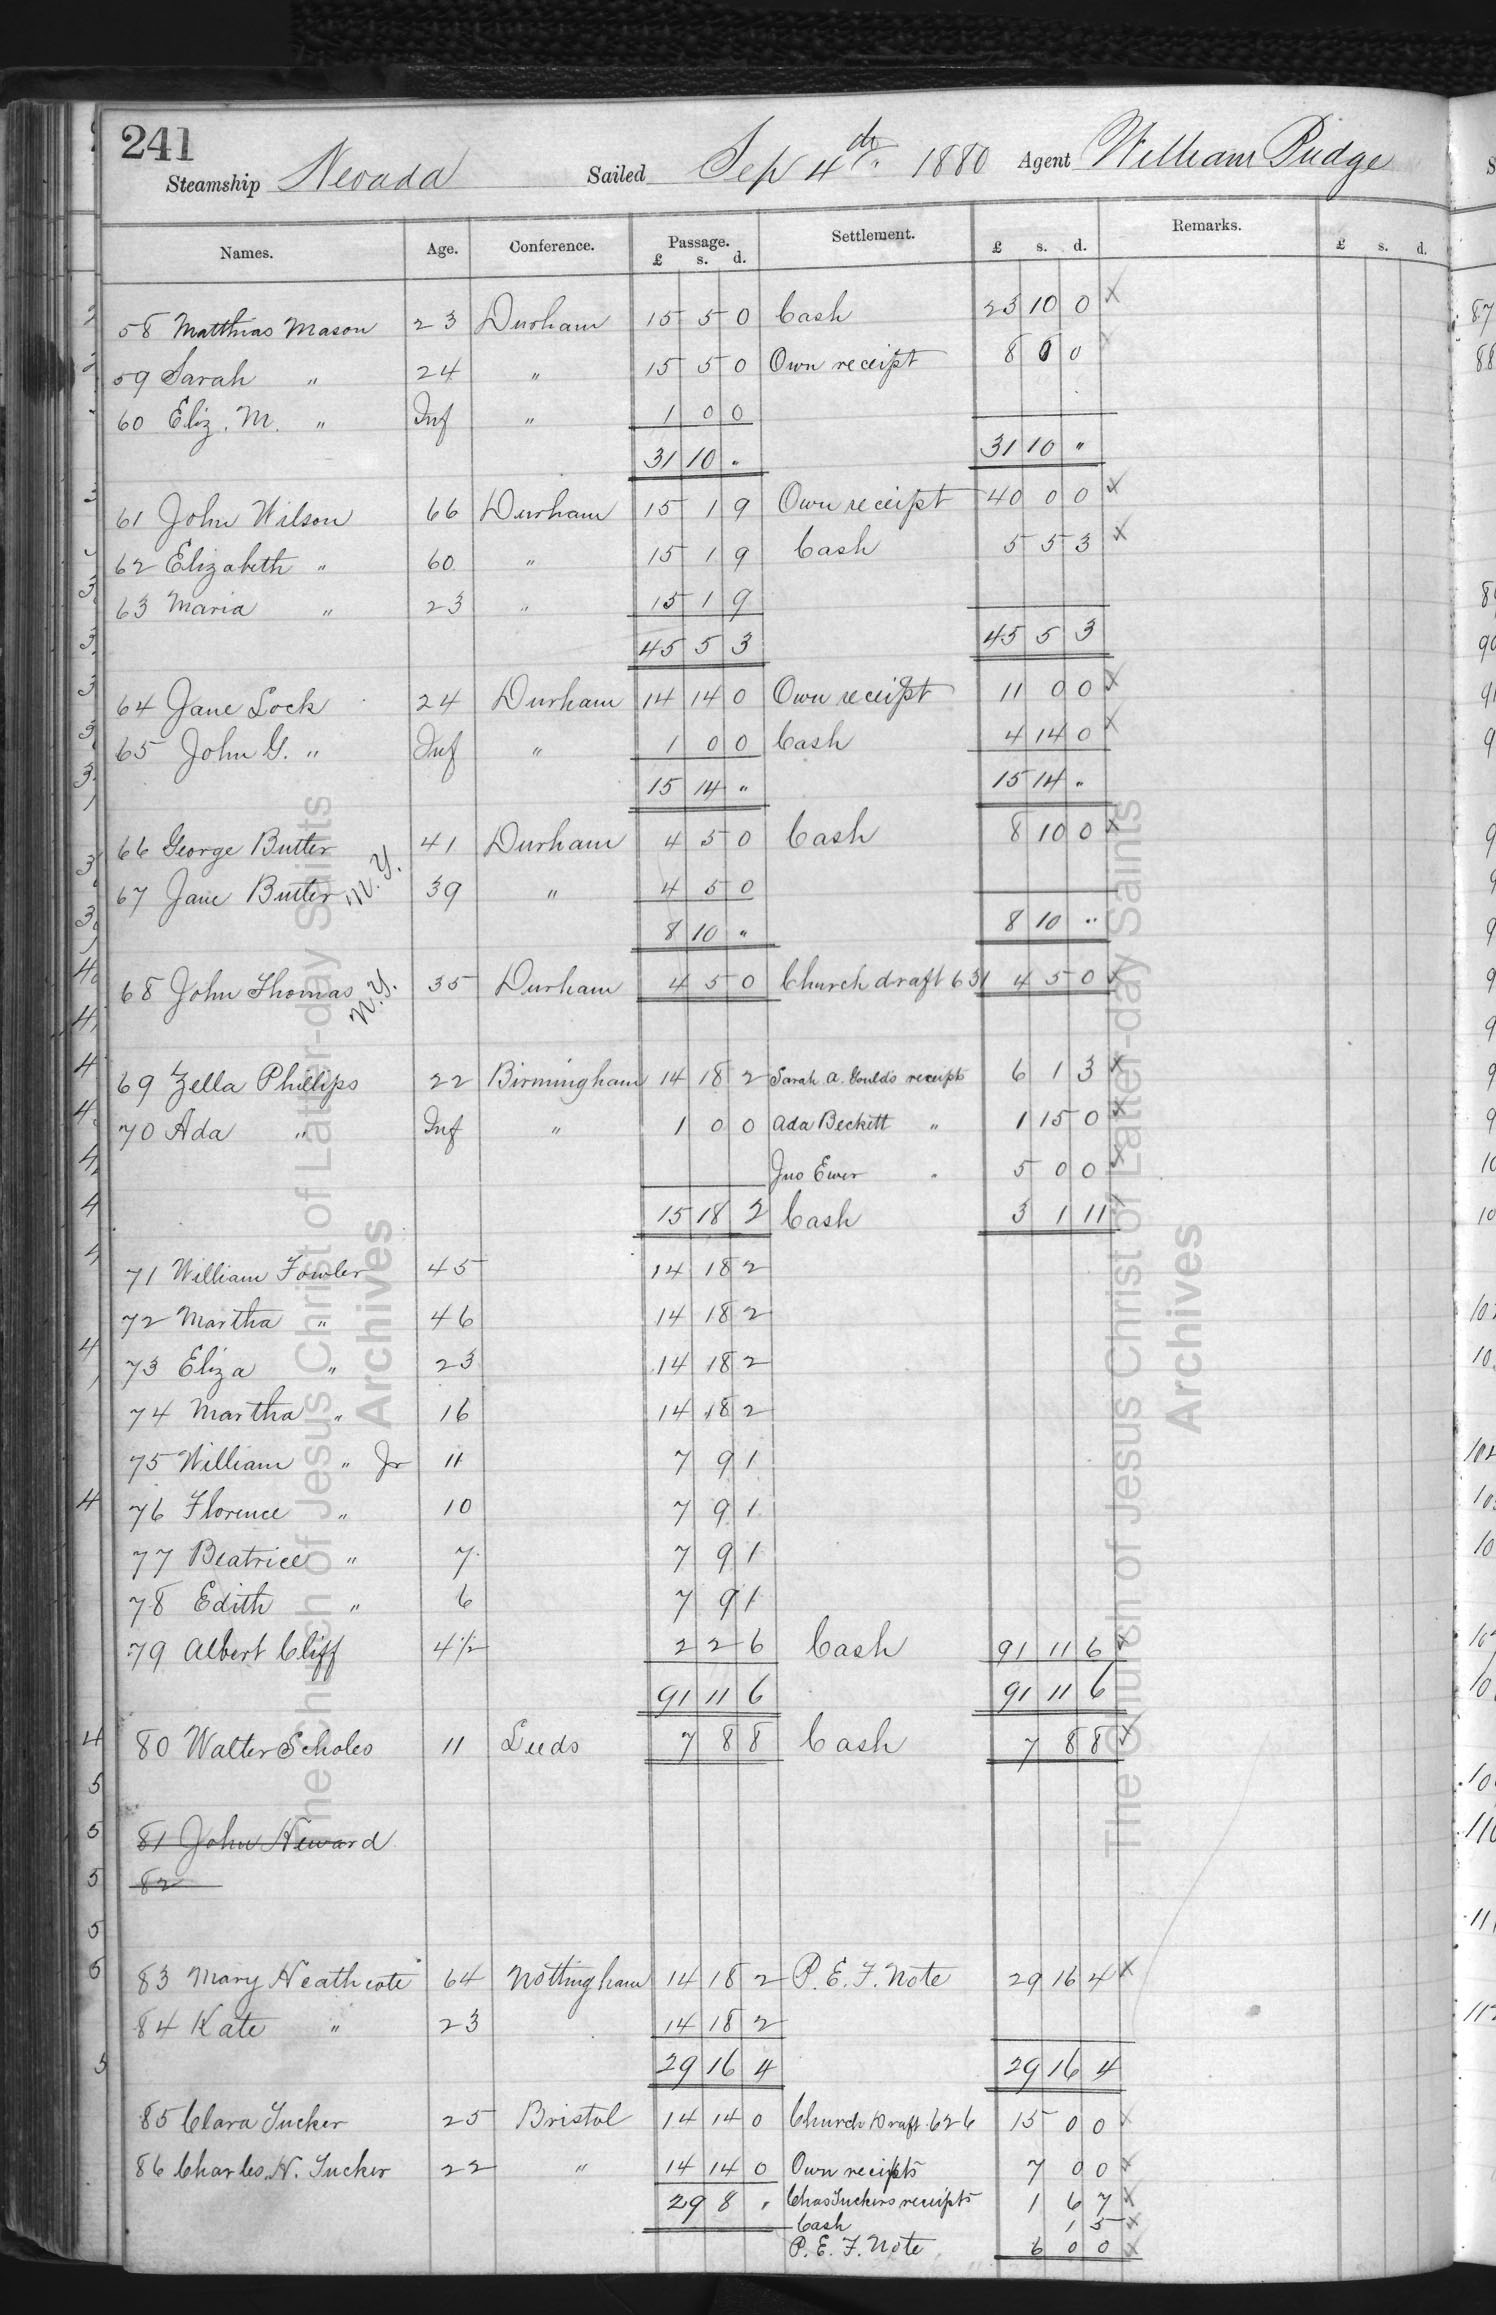 241
Steamship Nevada Sailed Sep 4th. 1880 Agent William Pudge
Names. Age. Conference. Passage. Settlement. Remarks.
£ s. d. £ s. d. £ s. d.
58 Matthias Mason 23 Durham 15 5 0 Cash 23 10 0 x
59 Sarah " 24 " 15 5 0 Own receipt 8 0 0 x
60 Eliz. M. " Inf " 1 0 0
31 10 " 31 10 "
61 John Wilson 66 Durham 15 1 9 Own receipt 40 0 0 x
62 Elizabeth " 60 " 15 1 9 Cash 5 5 3 x
63 Maria " 23 " 15 1 9
45 5 3 45 5 3
64 Jane Lock 24 Durham 14 14 0 Own receipt 11 0 0 x
65 John G. " Inf " 1 0 0 Cash 4 14 0 x
15 14 " 15 14 "
66 George Butter 41 Durham 4 5 0 Cash 8 10 0 x
67 Jane Butter N.Y. 39 " 4 5 0
8 10 " 8 10 "
68 John Thomas N.Y. 35 Durham 4 5 0 Church draft 631 4 5 0 x
69 Zella Phillips 22 Birmingham 14 18 2 Sarah A. Goulds receipts 6 1 3 x
70 Ada " Inf " 1 0 0 Ada Beckitt " 1 15 0 x
Jno Ewer " 5 0 0 x
15 18 2 Cash 3 1 11
71 William Fowler 45 14 18 2
72 Martha " 46 14 18 2
73 Eliza " 23 14 18 2
74 Martha " 16 14 18 2
75 William " Jr 11 7 9 1
76 Florence " 10 7 9 1
77 Beatrice " 7 7 9 1
78 Edith " 6 7 9 1
79 Albert Cliff 4 1/2 2 2 6 Cash 91 11 6 x
91 11 6 91 11 6
80 Walter Scholes 11 Leeds 7 8 8 Cash 7 8 8 x
81 John Neward
82
83 Mary Heathcote 64 Nottingham 14 18 2 P.E.F. Note 29 16 4 x
84 Kate " 23 14 18 2
29 16 4 29 16 4
85 Clara Tucker 25 Bristol 14 14 0 Church Draft 626 15 0 0 x
86 Charles H. Tucker 22 " 14 14 0 Own receipts 7 0 0 x
29 8 " Chas Tuckers receipts 1 6 7 x
Cash 1 5 x
P.E.F. Note 6 0 0 x
The Church of Jesus Christ of Latter-day Saints
Archives
The Church of Jesus Christ of Latter-day Saints
Archives